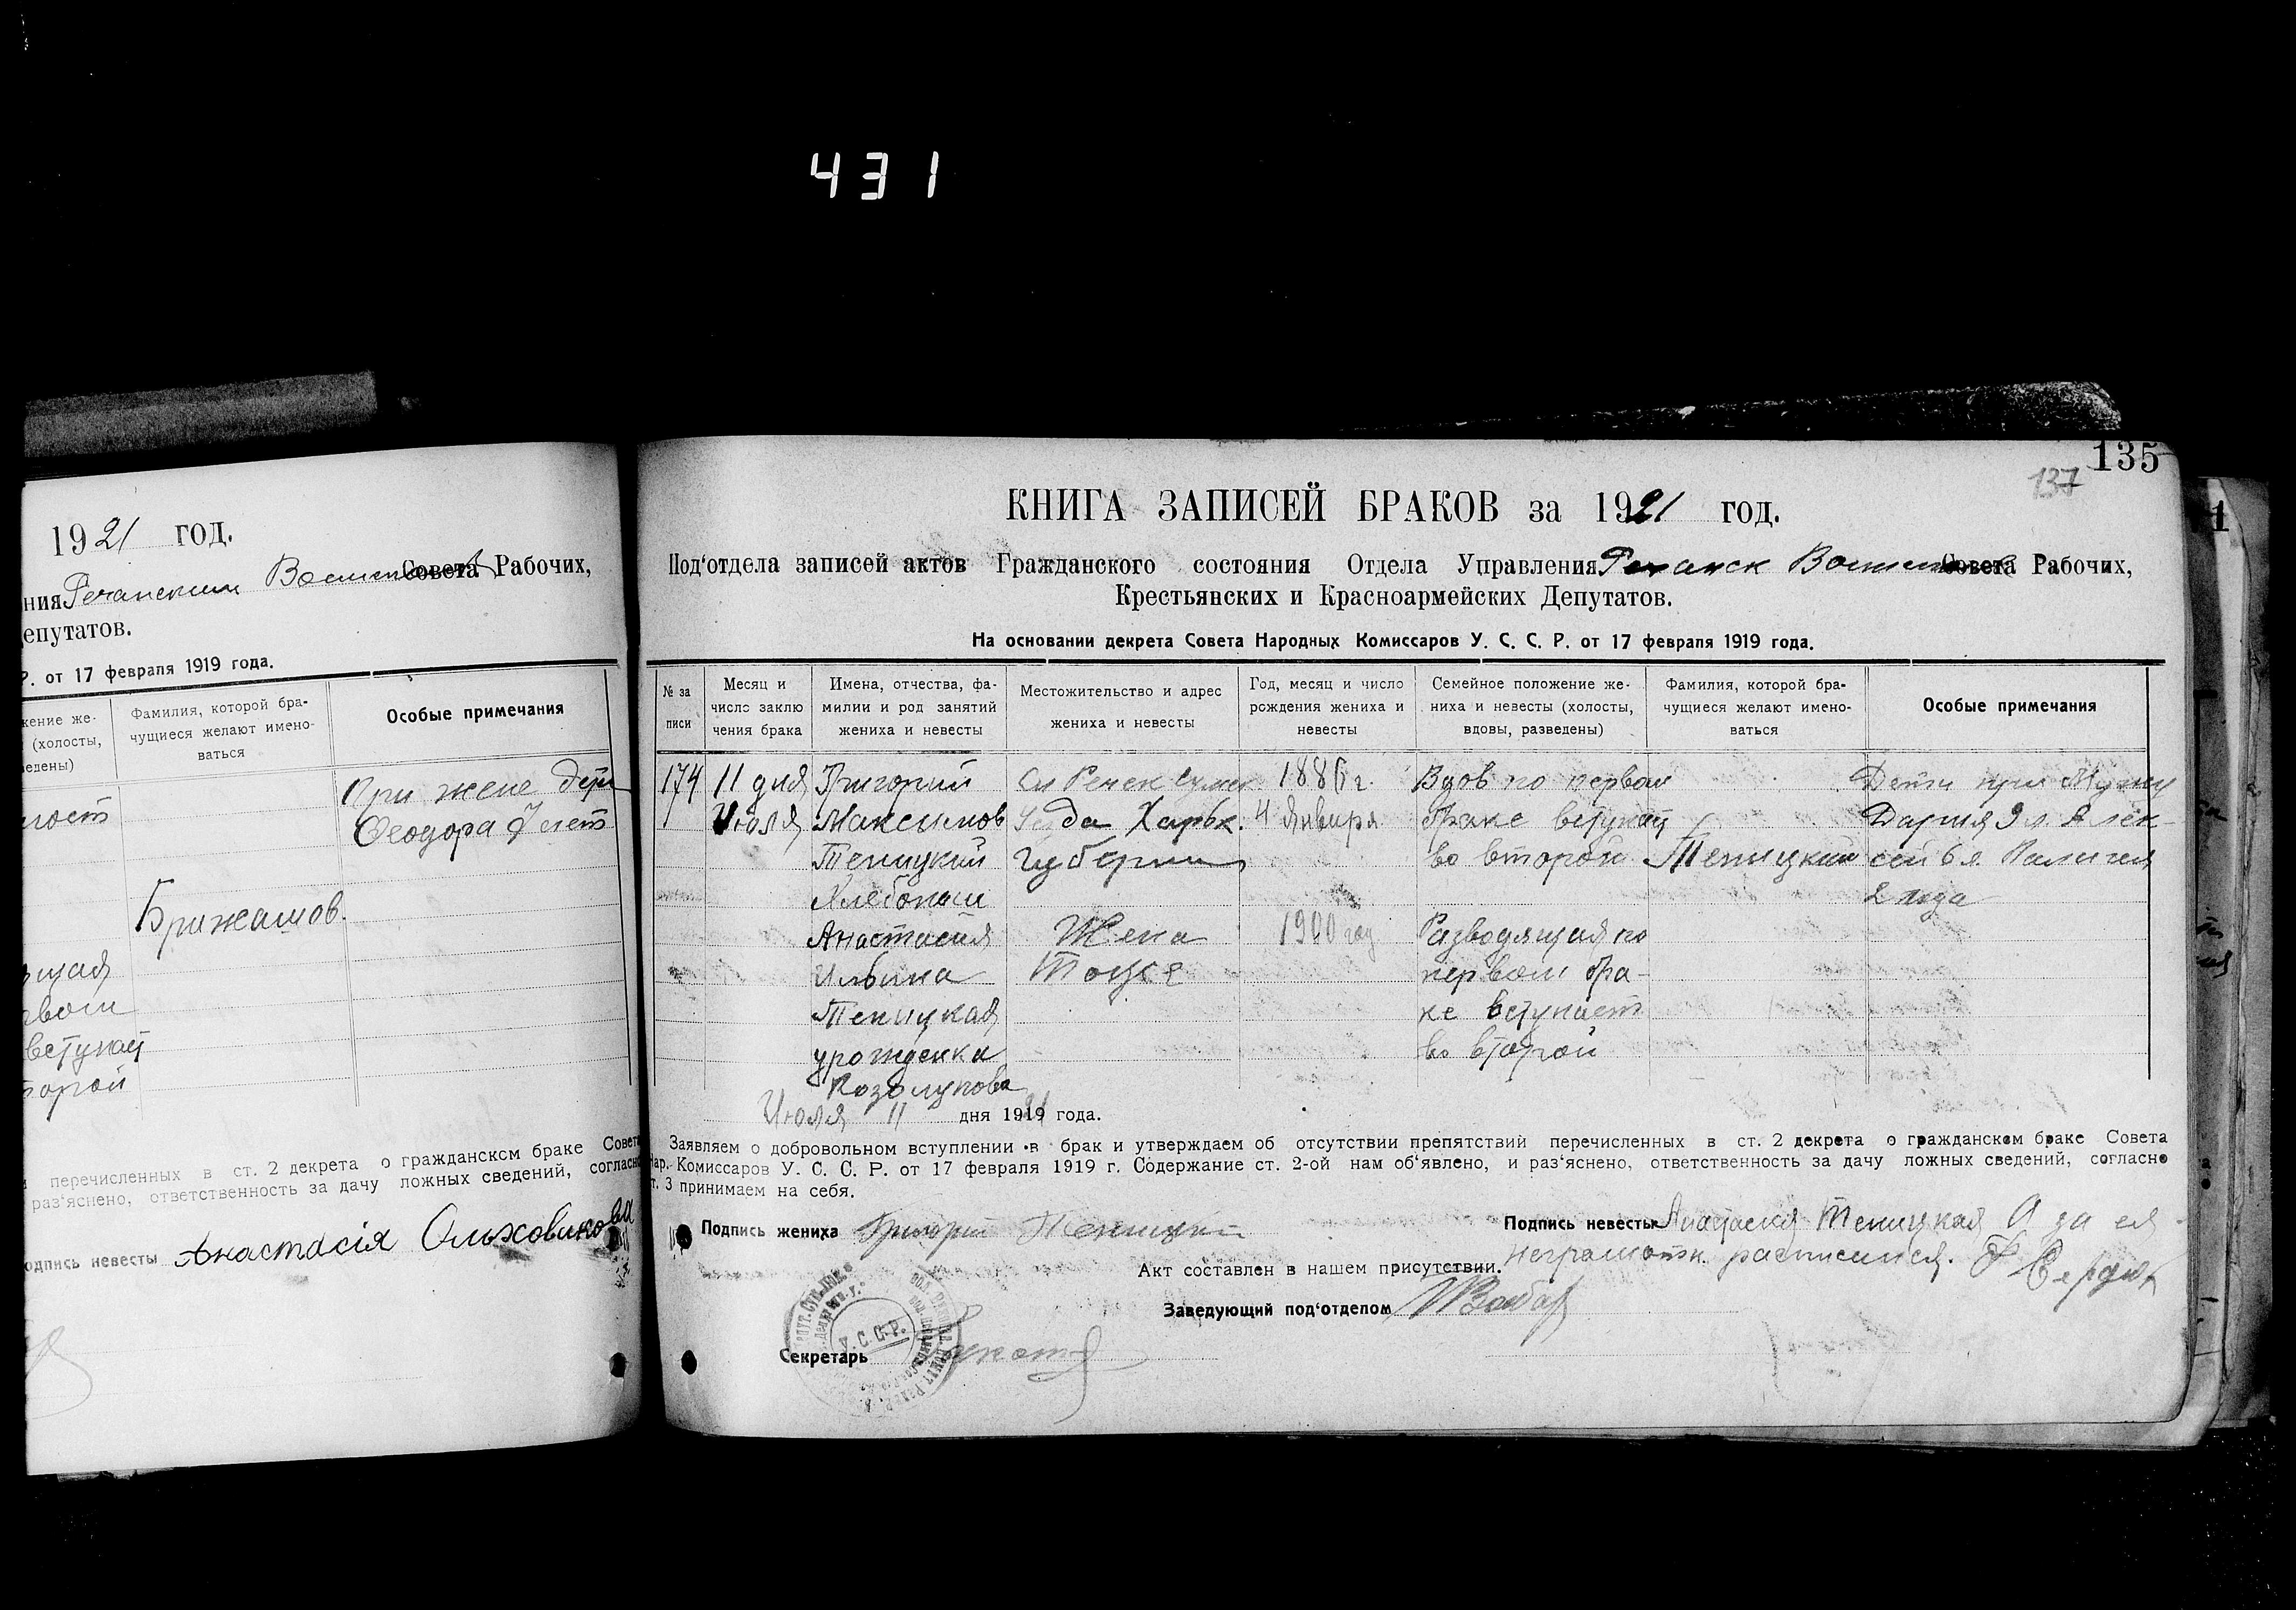 431
1921 год.
ния Речанским Совета Рабочих,
епутатов.
Р. от 17 февраля 1919 года.
жение же-
(холосты,
едены)
Фамилия, которой бра-
чущиеся желают имено-
ваться
Особые примечания
При жене
лост
Феодора 7 лет
Брижатов.
щая
рвом
вступает
торой
перечисленных в ст. 2 декрета о гражданском браке Совета
раз‘яснено, ответственность за дачу ложных сведений, согласно
одпись невесты Анастасія Ольховикова
135
137
КНИГА ЗАПИСЕЙ БРАКОВ за 1921 год.
Под‘отдела записей актов Гражданского состояния Отдела Управления Речанск Совета Рабочих,
Крестьянских и Красноармейских Депутатов.
На основании декрета Совета Народных Комиссаров У. С. С. Р. от 17 февраля 1919 года.
№ за
писи
Месяц и
число заклю
чения брака
Имена, отчества, фа-
милии и род занятий
жениха и невесты
Местожительство и адрес
жениха и невесты
Год, месяц и число
рождения жениха и
невесты
Семейное положение же-
ниха и невесты (холосты,
вдовы, разведены)
Фамилия, которой бра-
чущиеся желают имено-
ваться
Особые примечания
174
11 дня
Июля
Григорий
Максимов
Теницкий
Хлебопаш
Анастасия
Ильина
Теницкая
урожденка
Козолупова
Сл Речек Сумск
Уезда Харьк.
Губернии
Жена
Тоже
1886 г.
4 Января
1900 год
Вдов по первом
браке вступает
во второй
Разводящая по
первом бра-
ке вступает
во второй
Теницкий
Дети при Мужу
Дария 9 л. Алек-
сей 6 л.
2 года
Июля 11 дня 1921 года.
Заявляем о добровольном вступлении в брак и утверждаем об отсутствии препятствий перечисленных в ст. 2 декрета о гражданском браке Совета
Нар. Комиссаров У. С. С. Р. от 17 февраля 1919 г. Содержание ст. 2-ой нам об‘явлено, и раз‘яснено, ответственность за дачу ложных сведений, согласно
ст. 3 принимаем на себя.
Подпись жениха Григорий Теницкий
Подпись невесты Анастасия Теницкая А за ея
неграмотн. расписался. Ф Сердюк
Акт составлен в нашем присутствии.
Заведующий под‘отделом
У.С.С.Р.
Секретарь